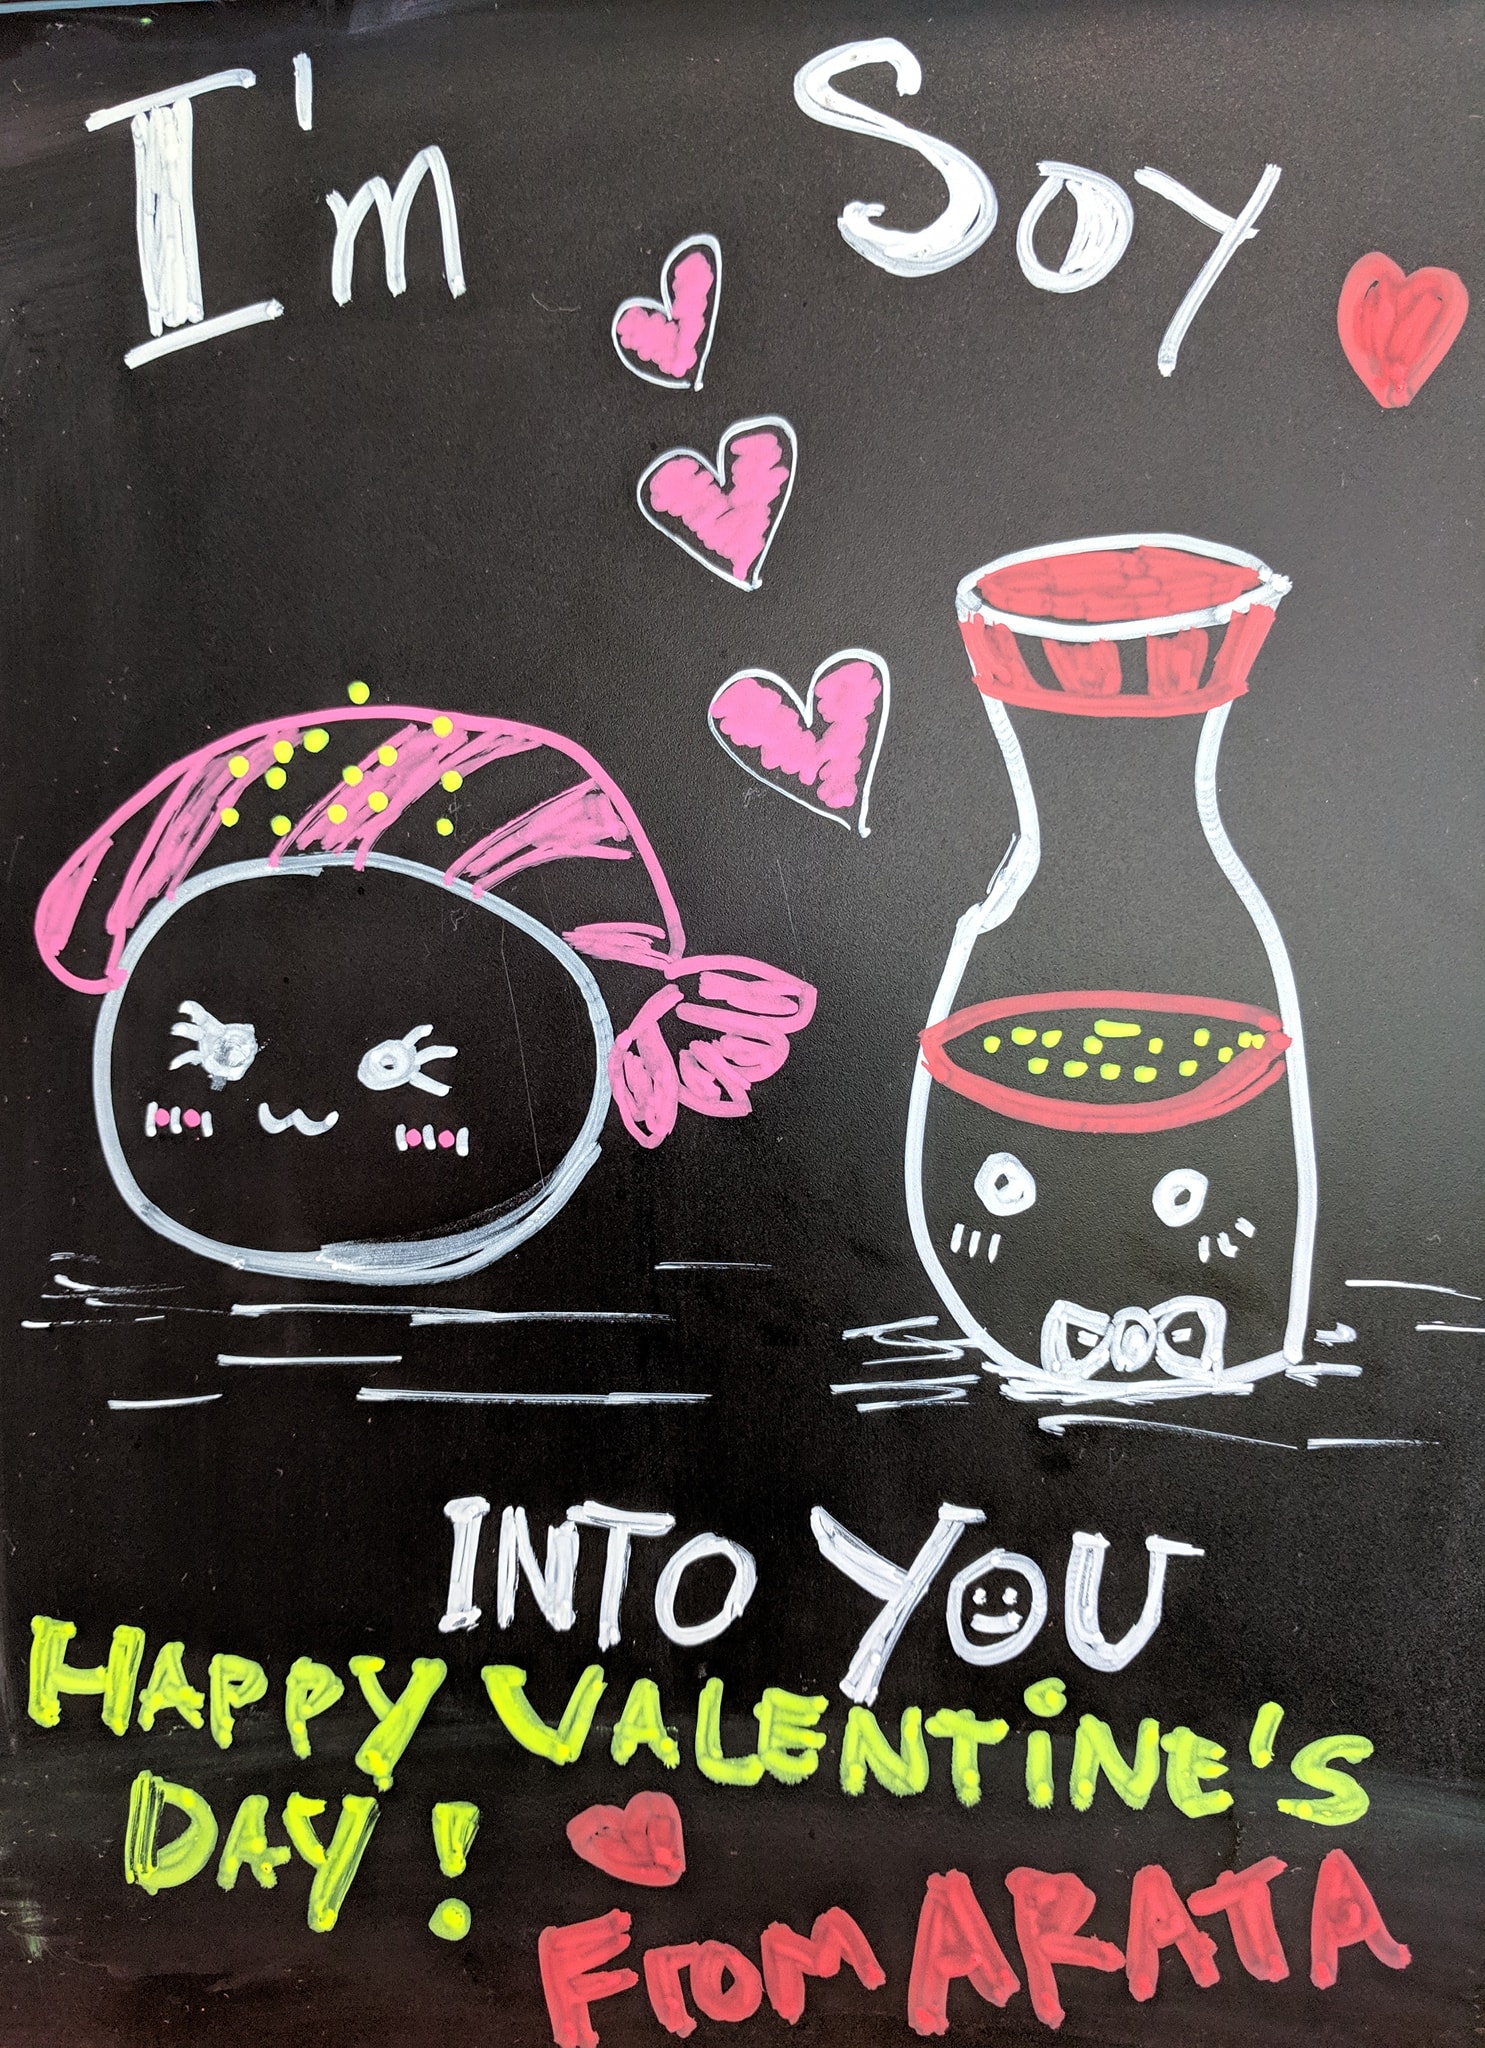 I'm Soy
INTO YOU
HAPPY VALENTiNE'S
DAY!
FROM ARATA